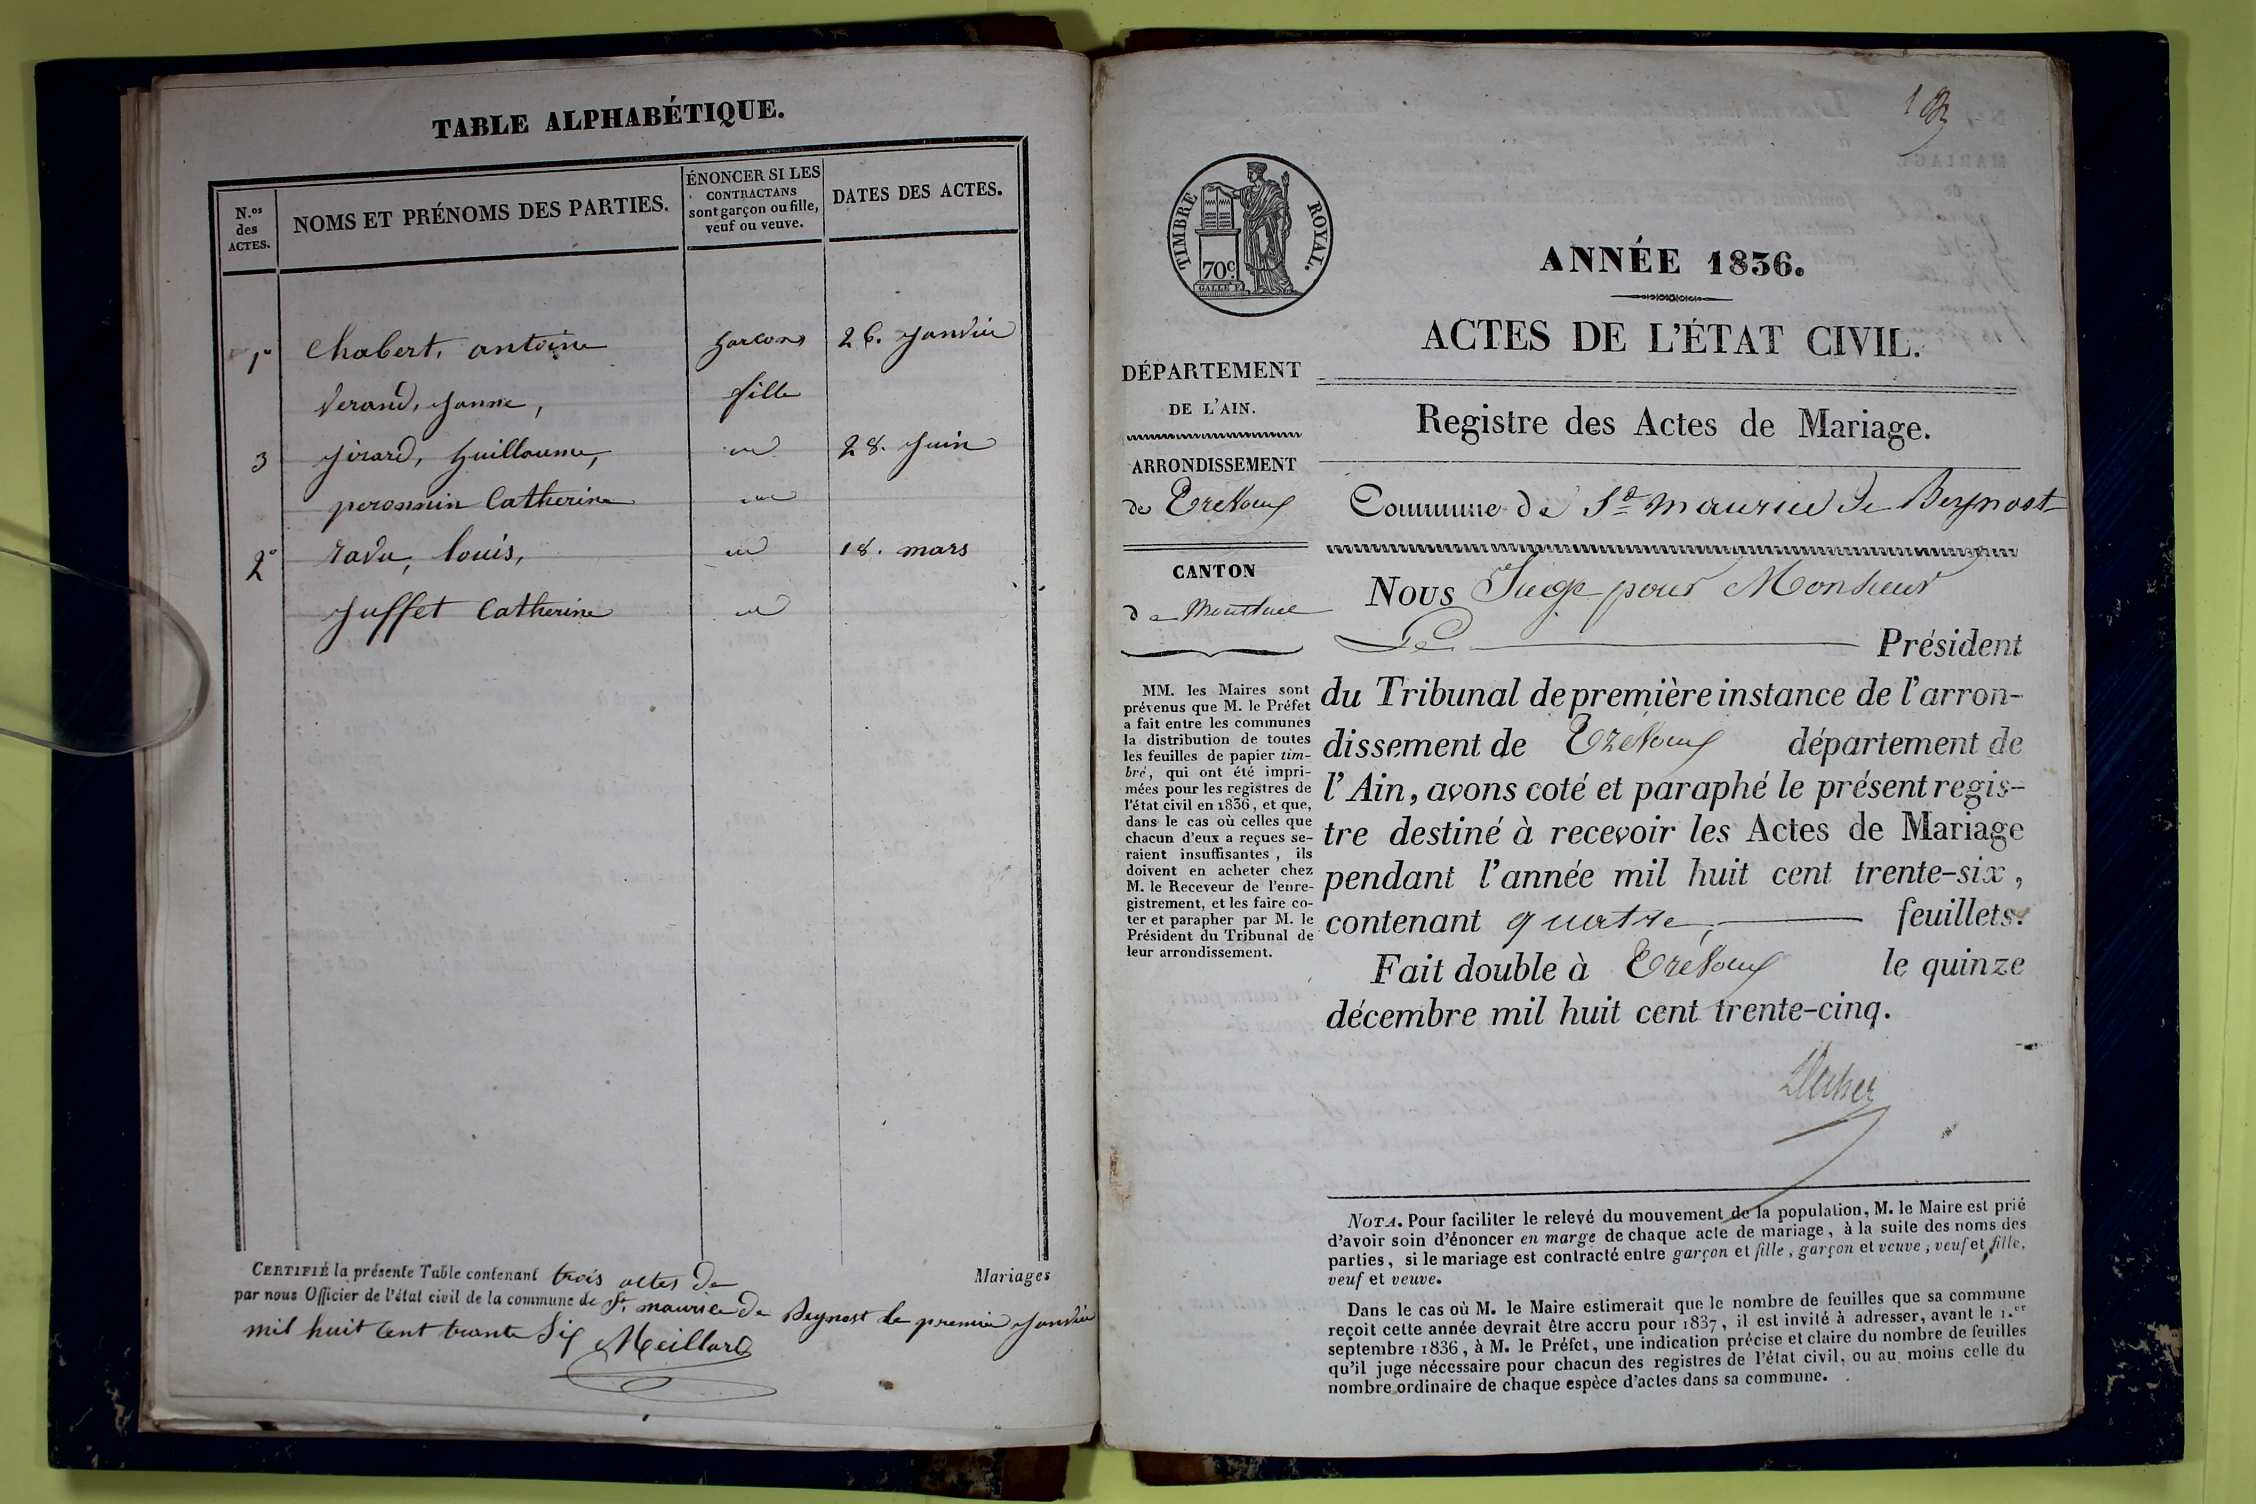 TABLE ALPHABÉTIQUE.
N.os des ACTES.
NOMS ET PRÉNOMS DES PARTIES.
ÉNONCER SI LES
CONTRACTANS
sont garçon ou fille,
veuf ou veuve.
DATES DES ACTES.
1° Chabert, antoine garcons 26. Janvier
Verand, Janne, fille
3 Jirard, Guillaume, id 28. Juin
peronnin Catherine id
2° ravu, louis, id 18. mars
Juffet Catherine id
CERTIFIÉ la présente Table contenant trois actes de Mariages
par nous Officier de l'état civil de la commune de St. maurice de Beynost le premier Janvier
mil huit Cent trante Six Meillard
TIMBRE ROYAL.
70c.
GALLE F.
ANNÉE 1836.
ACTES DE L'ÉTAT CIVIL.
Registre des Actes de Mariage.
DÉPARTEMENT
DE L'AIN.
ARRONDISSEMENT
de Trévoux
CANTON
de Montluel
MM. les Maires sont
prévenus que M. le Préfet
a fait entre les communes
la distribution de toutes
les feuilles de papier tim-
bré, qui ont été impri-
mées pour les registres de
l'état civil en 1836, et que,
dans le cas où celles que
chacun d'eux a reçues se-
raient insuffisantes, ils
doivent en acheter chez
M. le Receveur de l'enre-
gistrement, et les faire co-
ter et parapher par M. le
Président du Tribunal de
leur arrondissement.
Commune de St maurice de Beynost
Nous Juge pour Monsieur
Le Président
du Tribunal de première instance de l'arron-
dissement de Trévoux département de
l'Ain, avons coté et paraphé le présent regis-
tre destiné à recevoir les Actes de Mariage
pendant l'année mil huit cent trente-six,
contenant quatre, feuillets.
Fait double à Trévoux le quinze
décembre mil huit cent trente-cinq.
NOTA. Pour faciliter le relevé du mouvement de la population, M. le Maire est prié
d'avoir soin d'énoncer en marge de chaque acte de mariage, à la suite des noms des
parties, si le mariage est contracté entre garçon et fille, garçon et veuve; veuf et fille,
veuf et veuve.
Dans le cas où M. le Maire estimerait que le nombre de feuilles que sa commune
reçoit cette année devrait être accru pour 1837, il est invité à adresser, avant le 1.er
septembre 1836, à M. le Préfet, une indication précise et claire du nombre de feuilles
qu'il juge nécessaire pour chacun des registres de l'état civil, ou au moins celle du
nombre ordinaire de chaque espèce d'actes dans sa commune.